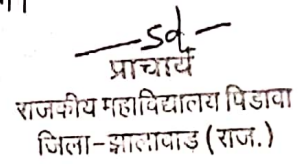 —sd—
प्राचार्य
राजकीय महाविद्यालय पिडावा
जिला-झालावाड (राज.)